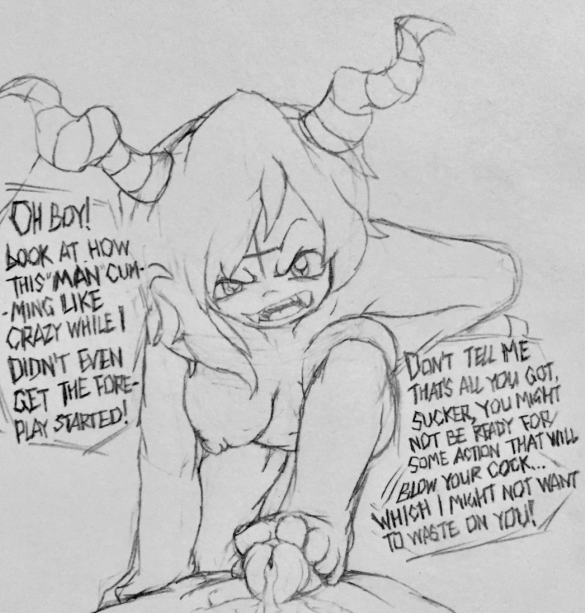 OH BOY!
LOOK AT HOW
THIS "MAN" CUM-
-MING LIKE
CRAZY WHILE I
DIDN'T EVEN
GET THE FORE-
PLAY STARTED!
DON'T TELL ME
THAT'S ALL YOU GOT,
SUCKER, YOU MIGHT
NOT BE READY FOR
SOME ACTION THAT WILL
BLOW YOUR COCK...
WHICH I MIGHT NOT WANT
TO WASTE ON YOU!